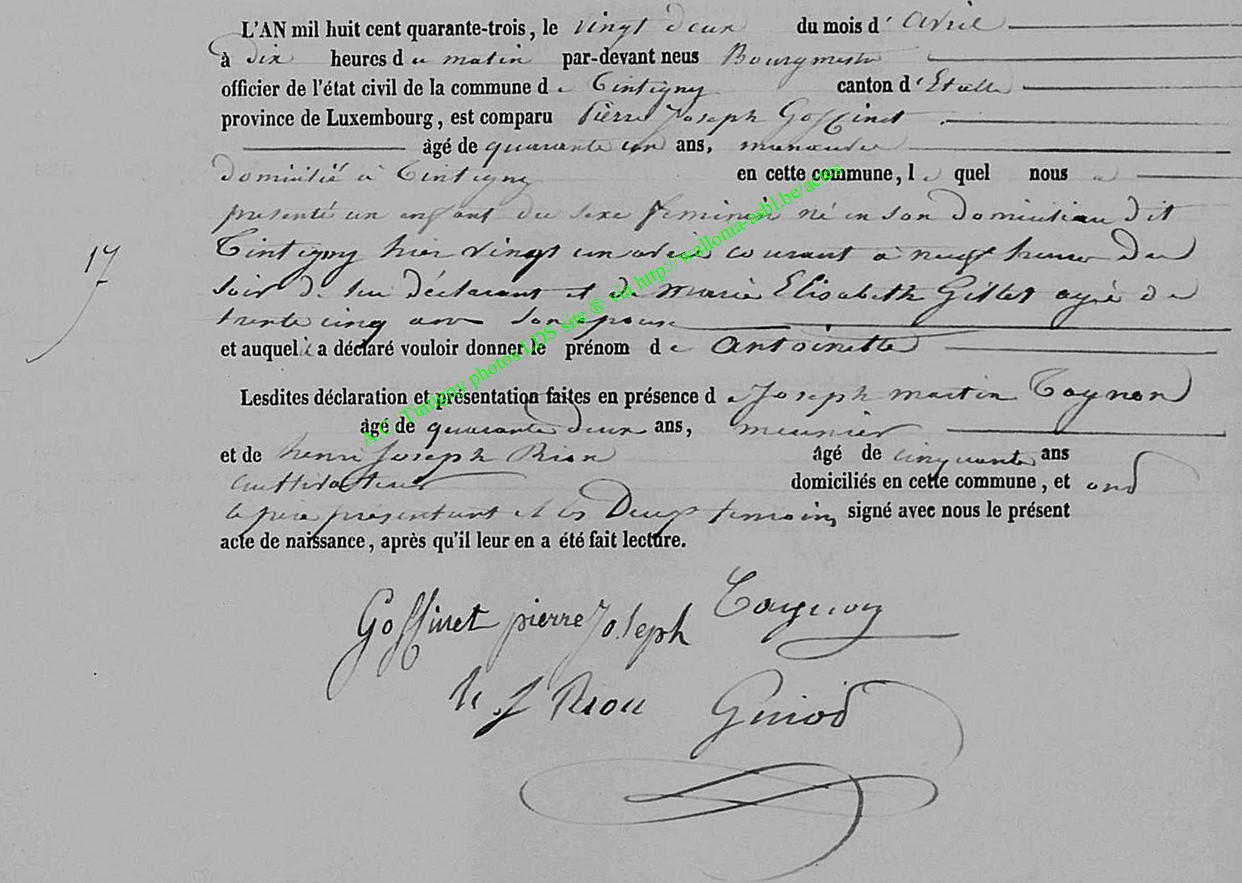 L'AN mil huit cent quarante-trois, le vingt deux du mois d'avril
à dix heures du matin par-devant nous Bourgmestre
officier de l'état civil de la commune de Tintigny canton d'Etalle
province de Luxembourg, est comparu Pierre Joseph Goffinet
âgé de quarante un ans, manoeuvre
domicilié à Tintigny en cette commune, le quel nous a
presenté un enfant du sexe feminin né en son domicile au dit
17
Tintigny hier vingt un avril courant à neuf heures du
soir de lui déclarant et de Marie Elisabeth Gillet agée de
trente cinq ans son epouse
et auquel il a déclaré vouloir donner le prénom de Antoinette
Lesdites déclaration et présentation faites en présence de Joseph martin Tognon
âgé de quarante deux ans, meunier
et de henri Joseph Rion âgé de cinquante ans
cultivateur domiciliés en cette commune, et ond
le pere presentant et les Deux temoins signé avec nous le présent
acte de naissance, après qu'il leur en a été fait lecture.
Goffinet pierre Joseph
h J Riou
A.C. Tintigny photos LDS site ® via http://wallonia-asbl.be/actes